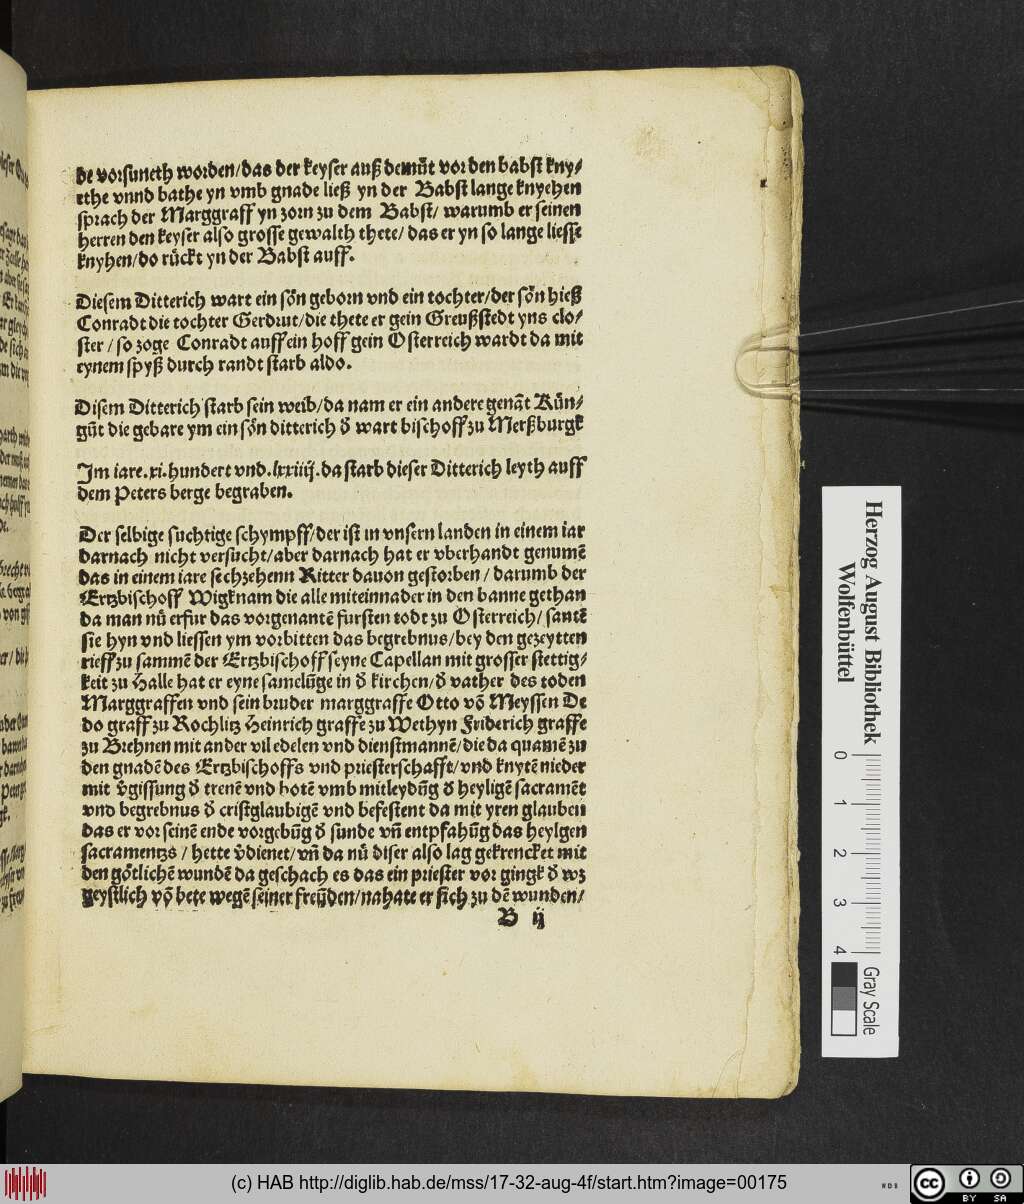 de vorsuneth worden/das der keyser auß demůt vor den babst kny/
ethe vnnd bathe yn vmb gnade ließ yn der Babst lange knyehen
sprach der Marggraff yn zorn zu dem Babst/ warumb er seinen
herren den keyser also grosse gewalth thete/ das er yn so lange liesse
knyhen/do růckt yn der Babst auff.
Diesem Ditterich wart ein sőn geborn vnd ein tochter/der sőn hieß
Conradt die tochter Gerdrut/die thete er gein Greußstedt yns clo/
ster / so zoge Conradt auff ein hoff gein Osterreich wardt da mit
eynem spyß durch randt starb aldo.
Disem Ditterich starb sein weib/da nam er ein andere genāt Kün/
gūt die gebare ym ein sőn ditterich d̄ wart bischoff zu Merßburgk
Im iare.xi.hundert vnd.lxxiiij.da starb dieser Ditterich leyth auff
dem Peters berge begraben.
Der selbige suchtige schympff/der ist in vnsern landen in einem iar
darnach nicht versucht/aber darnach hat er vberhandt genumē
das in einem iare sechzehenn Ritter dauon gestorben / darumb der
Ertzbischoff Wigknam die alle miteinnader in den banne gethan
da man nů erfur das vorgenantē fursten todt zu Osterreich/ santē
sie hyn vnd liessen ym vorbitten das begrebnus/bey den gezeytten
rieff zu sammē der Ertzbischoff seyne Capellan mit grosser stettig/
keit zu Halle hat er eyne samelūge in d̄ kirchen/d̄ vather des toden
Marggraffen vnd sein bruder marggraffe Otto vō Meyssen De
do graff zu Rochlitz Heinrich graffe zu Wethyn Friderich graffe
zu Brehnen mit ander vil edelen vnd dienstmannē/die da quamē zu
den gnadē des Ertzbischoffs vnd priesterschafft/vnd knytē nieder
mit v̄gissung d̄ trenē vnd botē vmb mitleydūg d̄ heyligē sacramēt
vnd begrebnus d̄ cristglaubigē vnd befestent da mit yren glauben
das er vor seinē ende vorgebūg d̄ sunde vn̄ entpfahūg das heylgen
sacramentzs / hette v̄dienet/vn̄ da nů diser also lag gekrencket mit
den gőtlichē wundē da geschach es das ein priester vor gingk d̄ wz
geystlich vō bete wegē seiner freüden/nahate er sich zu dē wunden/
B ij
Herzog August Bibliothek
Wolfenbüttel
0 1 2 3 4
Gray Scale
(c) HAB http://diglib.hab.de/mss/17-32-aug-4f/start.htm?image=00175
WDB
CC BY SA